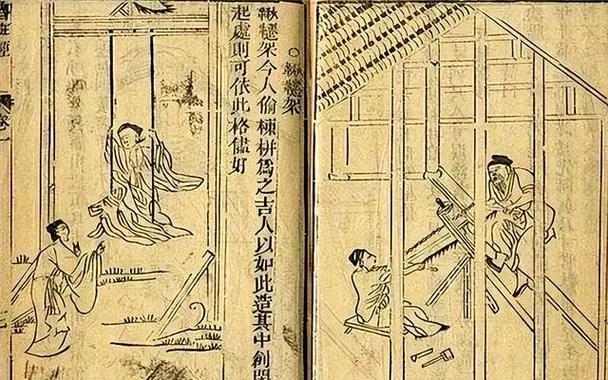 ○鞦韆架
鞦韆架今人偷棟栟爲之吉人以如此造其中創
起處則可依此格儘好
班經
卷一